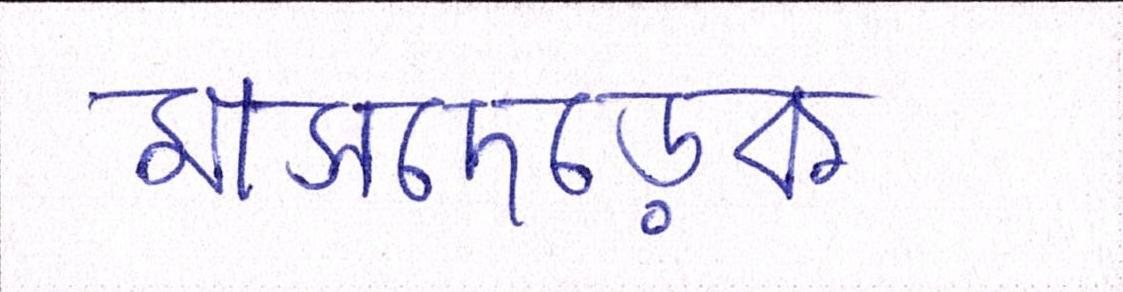 মাসদেড়েক